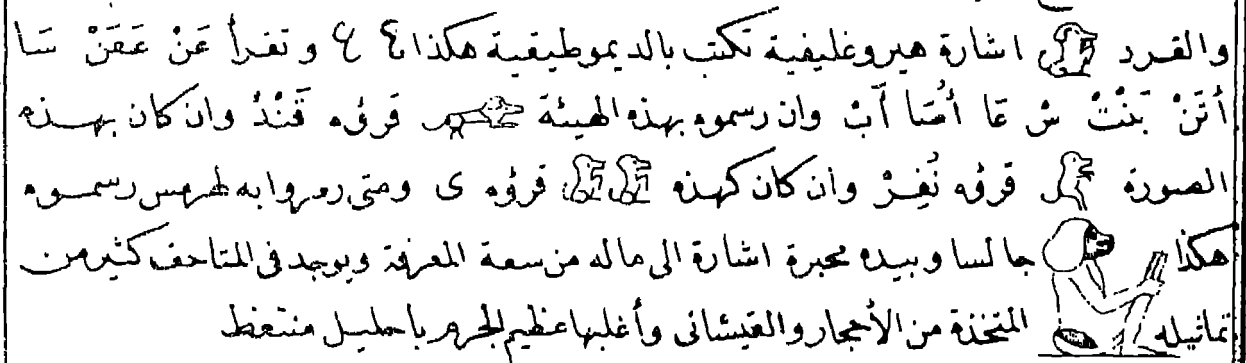 والقرد اشارة هيروغليفية تكتب بالديموطيقية هكذا وتقرأ عَنْ عَقَنْ سَا
أُتَنْ بَنْتْ شْ عَا أُمَنا آبْ وان رسموه بهذه الهيئة قرؤه قَنْدْ وان كان بهذه
الصورة قرؤه نُفِرْ وان كان كهذه قرؤه ى ومتى رمزوا به لهرمس رسموه
هكذا جالسا وبيده محبرة اشارة الى ماله من سعة المعرفة ويوجد فى المتاحف كثير من
تماثيله المتخذة من الأحجار والقيشانى وأغلبها عظيم الجرم باحليل منتعظ